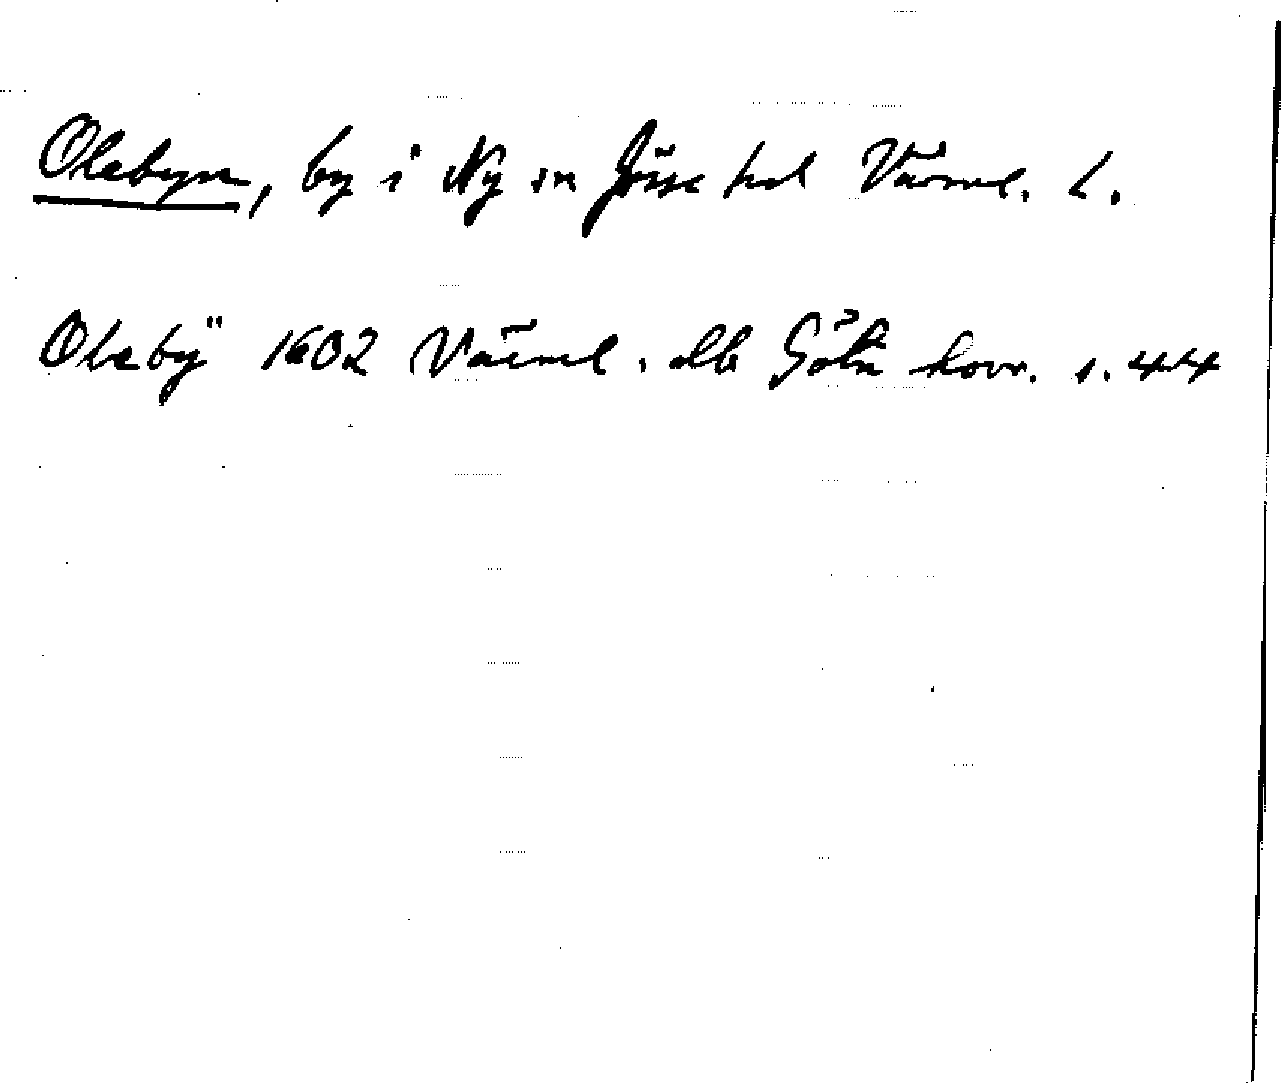 Olebyn, by i Ny sn Jösse hd Värml. l.
Oleby 1602 Värml. Älvsb lösen kovr. s. 44